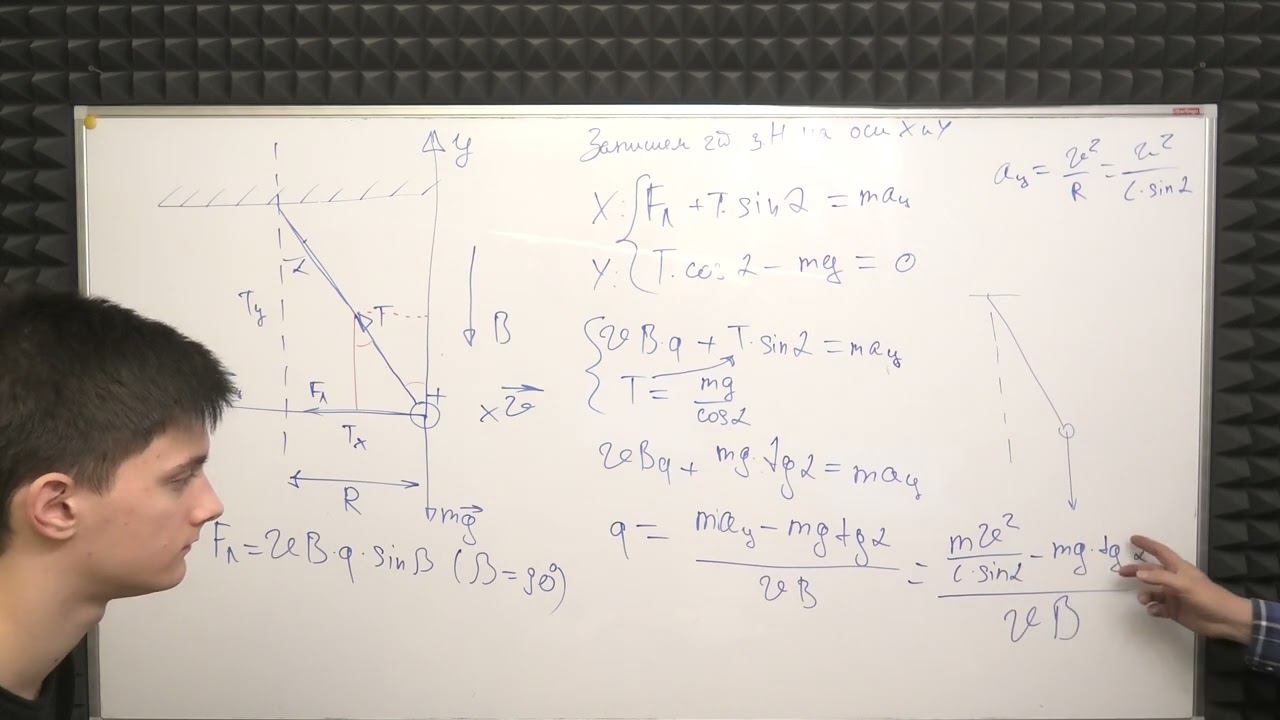 Запишем 2й з.Н на оси X и Y
aц = v²/R = v²/(l·sinα)
X: Fл + T·sinα = maц
Y: T·cosα − mg = 0
vB·q + T·sinα = maц
T = mg/cosα
vBq + mg·tgα = maц
q = (maц − mgtgα)/(vB) = (mv²/(l·sinα) − mg·tgα)/(vB)
y
α
Ty
T
B
Fл
+
x v
Tx
R
mg
Fл = vB·q·sinβ (β=90°)